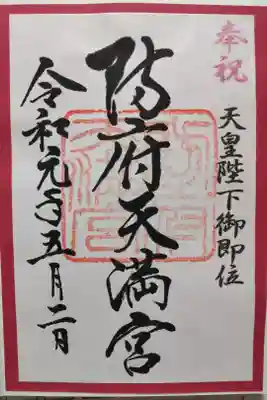 奉祝
天皇陛下御即位
防府天満宮
令和元年五月二日